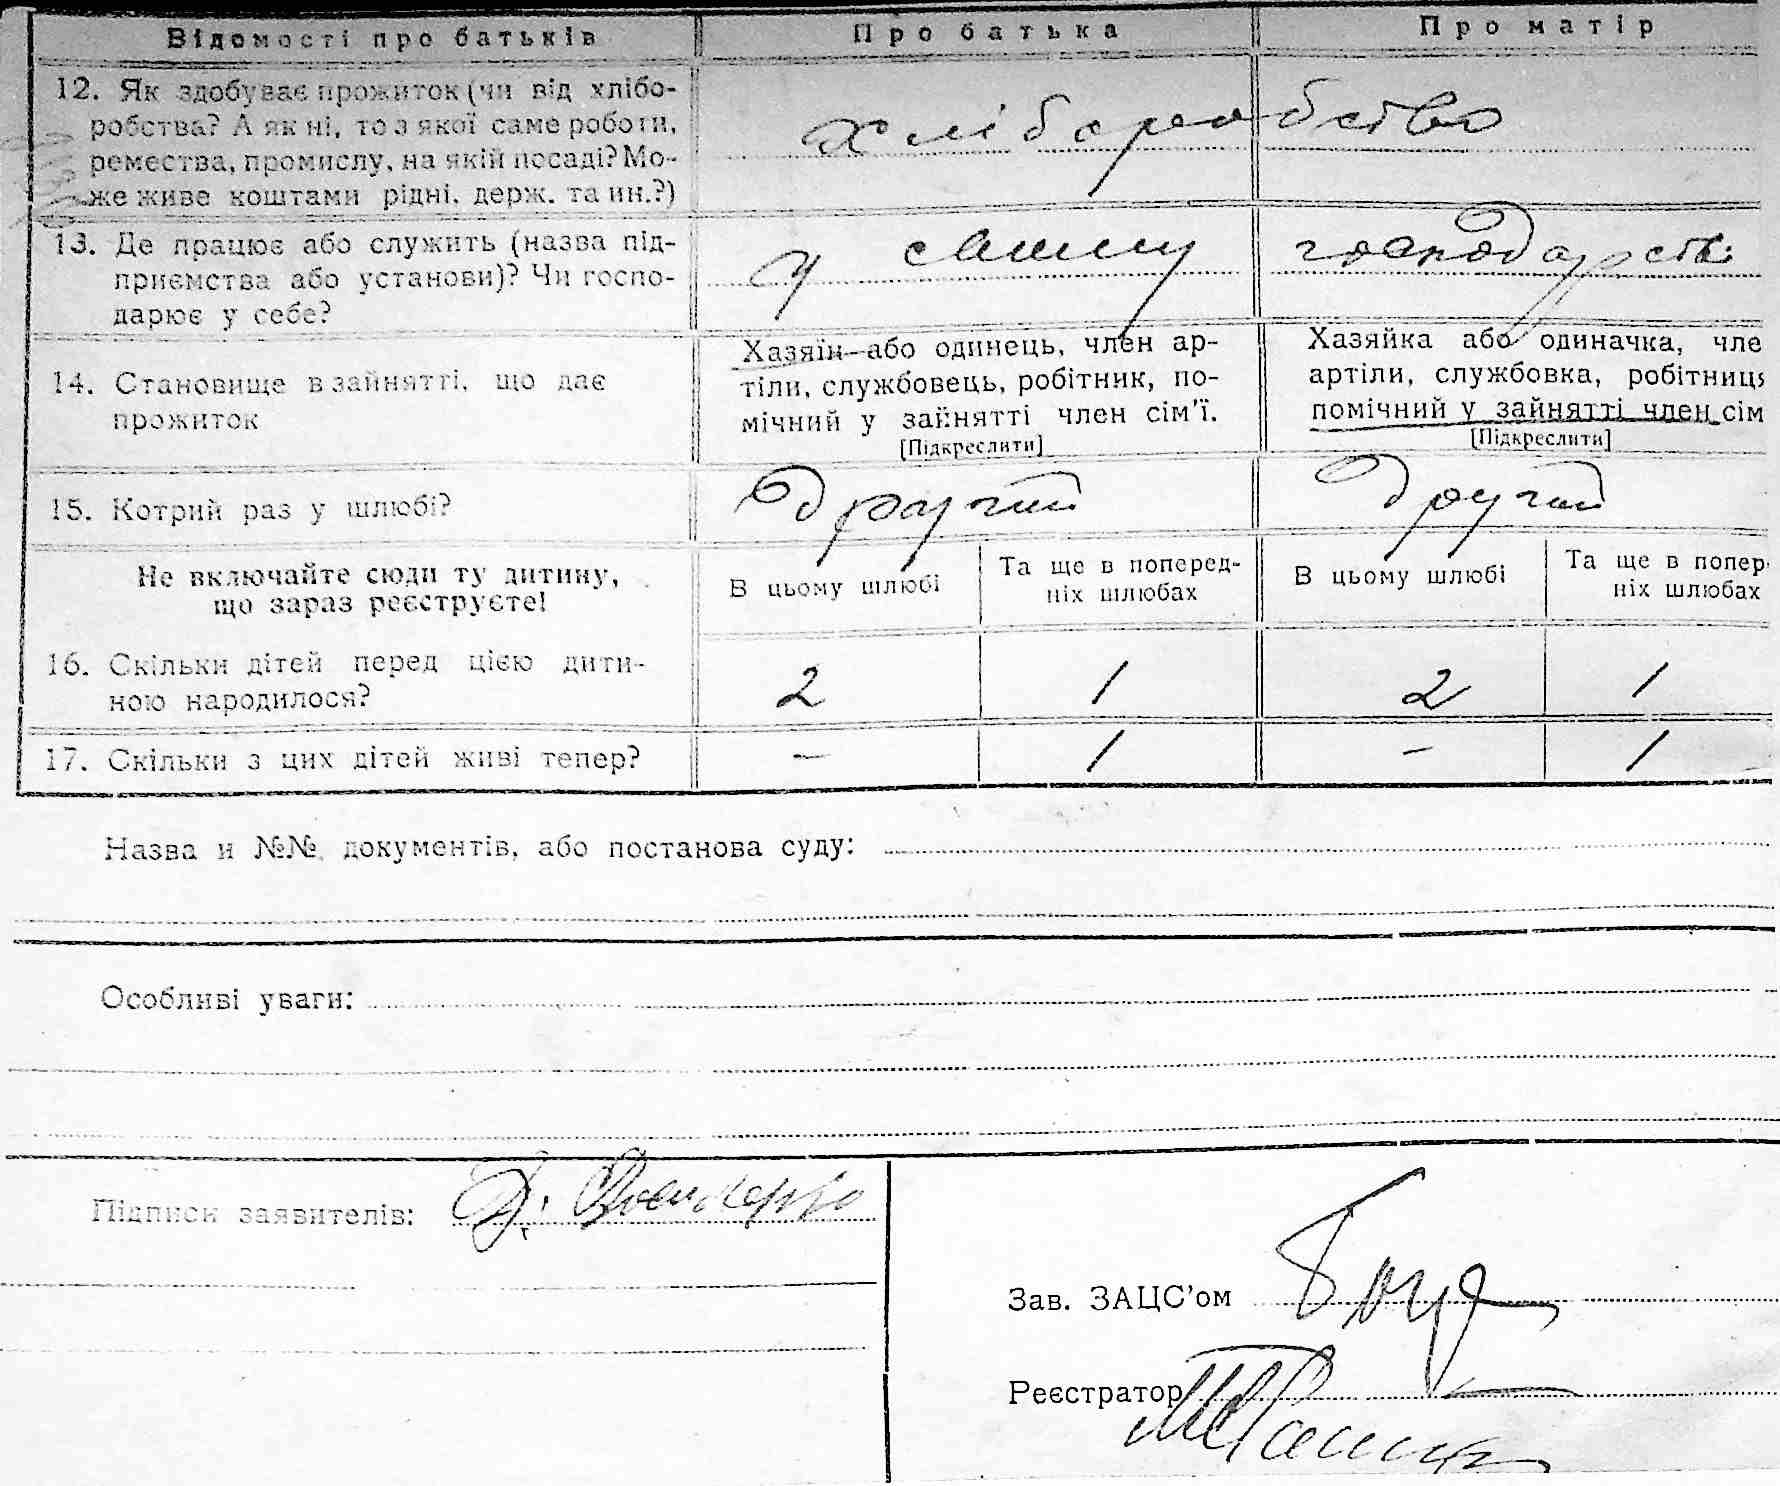 Відомості про батьків Про батька Про матір
12. Як здобуває прожиток (чи від хлібо-
робства? А як ні, то з якої саме роботи,
ремества, промислу, на якій посаді? Мо-
же живе коштами рідні, держ. та ин.?)
хліборобство
13. Де працює або служить (назва під-
приємства або установи)? Чи госпо-
дарює у себе?
у свому господарстві
14. Становище в зайнятті, що дає
прожиток
Хазяїн або одинець, член ар-
тіли, службовець, робітник, по-
мічний у зайнятті член сім'ї.
[Підкреслити]
Хазяйка або одиначка, чле
артіли, службовка, робітниця
помічний у зайнятті член сім
[Підкреслити]
15. Котрий раз у шлюбі? другий другий
Не включайте сюди ту дитину,
що зараз реєструєте!
В цьому шлюбі
Та ще в поперед-
ніх шлюбах
В цьому шлюбі
Та ще в попер
ніх шлюбах
16. Скільки дітей перед цією дити-
ною народилося?
2 1 2 1
17. Скільки з цих дітей живі тепер? — 1 — 1
Назва и №№ документів, або постанова суду:
Особливі уваги:
Підписи заявителів:
Зав. ЗАЦС'ом
Реєстратор